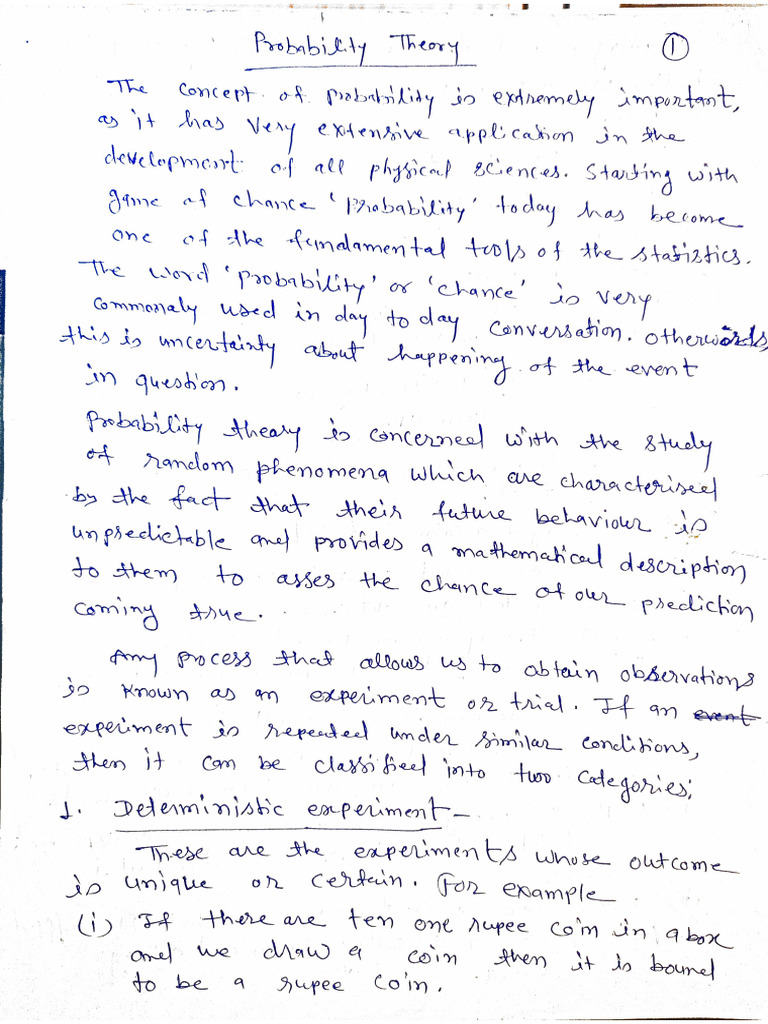 Probability Theory
①
The concept of probability is extremely important,
as it has very extensive application in the
development of all physical sciences. Starting with
game of chance 'probability' today has become
one of the fundamental tools of the statistics.
The word 'probability' or 'chance' is very
commonaly used in day to day conversation. Otherwords,
this is uncertainty about happening of the event
in question.
Probability theory is concerned with the study
of random phenomena which are characterised
by the fact that their future behaviour is
unpredictable and provides a mathematical description
to them to asses the chance of our prediction
coming true.
Any process that allows us to obtain observations
is known as an experiment or trial. If an event
experiment is repeated under similar conditions,
then it can be classified into two categories;
1. Deterministic experiment -
These are the experiments whose outcome
is unique or certain. For example
(i) If there are ten one rupee coin in a box
and we draw a coin then it is bound
to be a rupee coin.